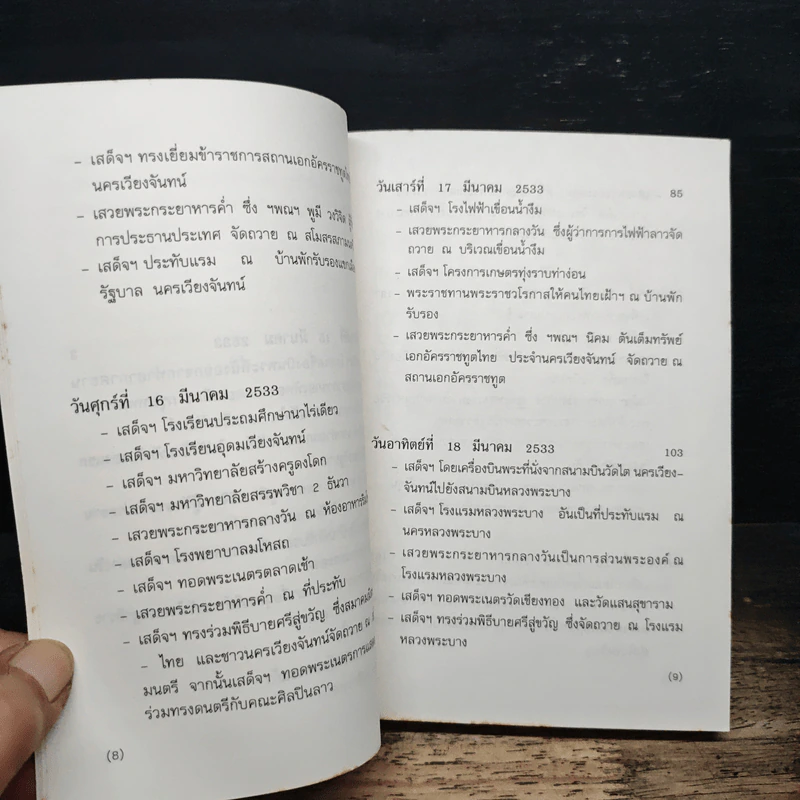 - เสด็จฯ ทรงเยี่ยมข้าราชการสถานเอกอัครราชทูต
นครเวียงจันทน์
- เสวยพระกระยาหารค่ำ ซึ่ง ฯพณฯ พูมี วงวิจิด
การประธานประเทศ จัดถวาย ณ
- เสด็จฯ ประทับแรม ณ บ้านพักรับรองแขก
รัฐบาล นครเวียงจันทน์
วันศุกร์ที่ 16 มีนาคม 2533
- เสด็จฯ โรงเรียนประถมศึกษานาไร่เดียว
- เสด็จฯ โรงเรียนอุดมเวียงจันทน์
- เสด็จฯ มหาวิทยาลัยสร้างครูดงโดก
- เสด็จฯ มหาวิทยาลัยสรรพวิชา 2 ธันวา
- เสวยพระกระยาหารกลางวัน ณ ห้องอาหาร
- เสด็จฯ โรงพยาบาลมโหสถ
- เสด็จฯ ทอดพระเนตรตลาดเช้า
- เสวยพระกระยาหารค่ำ ณ ที่ประทับ
- เสด็จฯ ทรงร่วมพิธีบายศรีสู่ขวัญ ซึ่งสมาคม
- ไทย และชาวนครเวียงจันทน์จัดถวาย ณ
มนตรี จากนั้นเสด็จฯ ทอดพระเนตร
ร่วมทรงดนตรีกับคณะศิลปินลาว
(8)
วันเสาร์ที่ 17 มีนาคม 2533 85
- เสด็จฯ โรงไฟฟ้าเขื่อนน้ำงึม
- เสวยพระกระยาหารกลางวัน ซึ่งผู้ว่าการการไฟฟ้าลาวจัด
ถวาย ณ บริเวณเขื่อนน้ำงึม
- เสด็จฯ โครงการเกษตรทุ่งราบท่าง่อน
- พระราชทานพระราชวโรกาสให้คนไทยเฝ้าฯ ณ บ้านพัก
รับรอง
- เสวยพระกระยาหารค่ำ ซึ่ง ฯพณฯ นิคม ตันเต็มทรัพย์
เอกอัครราชทูตไทย ประจำนครเวียงจันทน์ จัดถวาย ณ
สถานเอกอัครราชทูต
วันอาทิตย์ที่ 18 มีนาคม 2533 103
- เสด็จฯ โดยเครื่องบินพระที่นั่งจากสนามบินวัดไต นครเวียง-
จันทน์ไปยังสนามบินหลวงพระบาง
- เสด็จฯ โรงแรมหลวงพระบาง อันเป็นที่ประทับแรม ณ
นครหลวงพระบาง
- เสวยพระกระยาหารกลางวันเป็นการส่วนพระองค์ ณ
โรงแรมหลวงพระบาง
- เสด็จฯ ทอดพระเนตรวัดเชียงทอง และวัดแสนสุขาราม
- เสด็จฯ ทรงร่วมพิธีบายศรีสู่ขวัญ ซึ่งจัดถวาย ณ โรงแรม
หลวงพระบาง
(9)